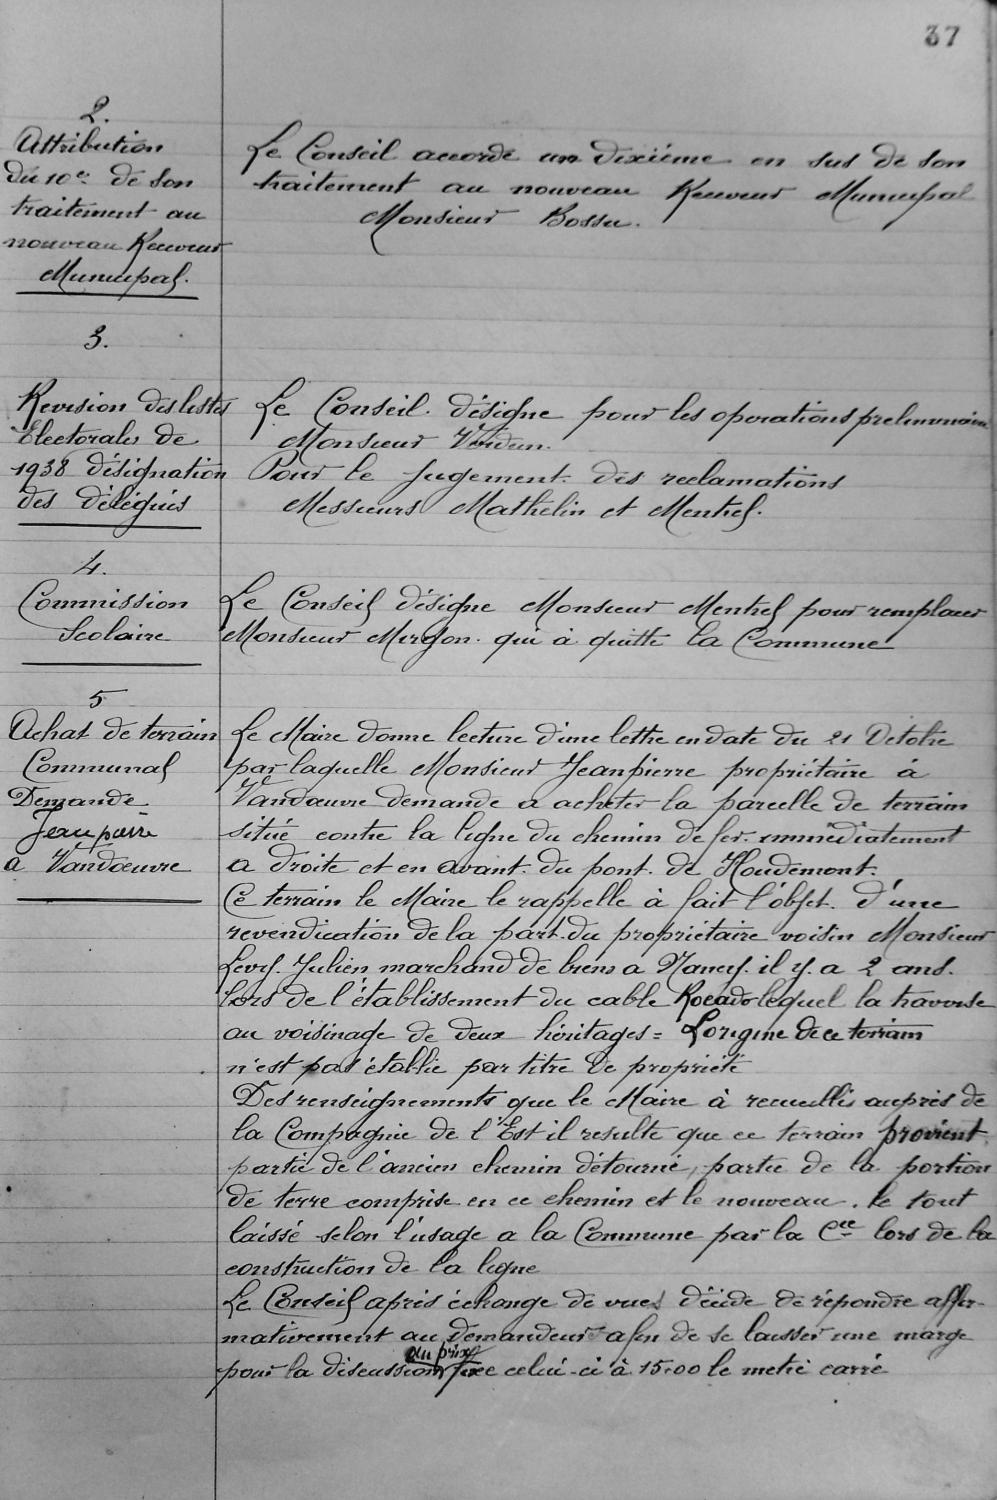 37
2.
Attribution
du 10e de son
traitement au
nouveau Receveur
Municipal.
Le Conseil accorde un dixième en sus de son
traitement au nouveau Receveur Municipal
Monsieur Bossu.
3.
Revision des listes
Electorales de
1938 désignation
des délégués
Le Conseil désigne pour les operations preliminaires
Monsieur Verdun.
Pour le Jugement des reclamations
Messieurs Mathelin et Mentrel.
4.
Commission
Scolaire
Le Conseil désigne Monsieur Mentrel pour remplacer
Monsieur Mergon qui à quitté la Commune
5
Achat de terrain
Communal
Demande
Jeanpierre
a Vandœuvre
Le Maire donne lecture d'une lettre en date du 21 Octobre
par laquelle Monsieur Jeanpierre propriétaire à
Vandœuvre demande a acheter la parcelle de terrain
situé contre la ligne du chemin de fer immédiatement
a droite et en avant du pont de Houdemont.
Ce terrain le Maire le rappelle à fait l'objet d'une
revendication de la part du propriétaire voisin Monsieur
Levy Julien marchand de biens a Nancy il y a 2 ans.
lors de l'établissement du cable lequel la traverse
au voisinage de deux héritages = L'origine de ce terrain
n'est pas établie par titre de propriété
Des renseignements que le Maire à recueillis auprès de
la Compagnie de l'Est il resulte que ce terrain provient
partie de l'ancien chemin détourné, partie de la portion
de terre comprise en ce chemin et le nouveau. le tout
laissé selon l'usage a la Commune par la Cie lors de la
construction de la ligne
Le Conseil après échange de vues décide de répondre affir-
mativement au demandeur afin de se laisser une marge
au prix
pour la discussion fixe celui-ci à 15.00 le metre carré